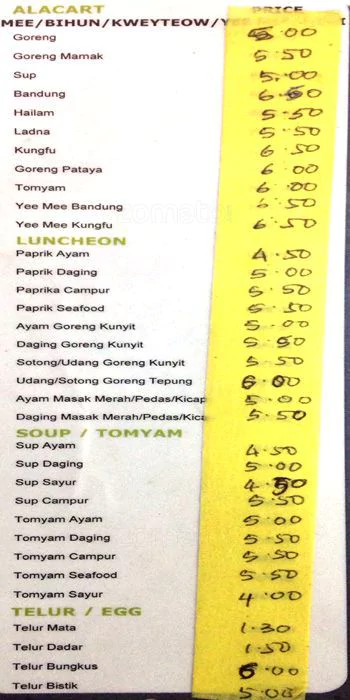 ALACART PRICE
MEE/BIHUN/KWEYTEOW/
Goreng 5.00
Goreng Mamak 5.50
Sup 5.00
Bandung 6.50
Hailam 5.50
Ladna 5.50
Kungfu 6.50
Goreng Pataya 6.00
Tomyam 6.00
Yee Mee Bandung 6.50
Yee Mee Kungfu 6.50
LUNCHEON
Paprik Ayam 4.50
Paprik Daging 5.00
Paprika Campur 5.50
Paprik Seafood 5.50
Ayam Goreng Kunyit 5.00
Daging Goreng Kunyit 5.50
Sotong/Udang Goreng Kunyit 5.50
Udang/Sotong Goreng Tepung 6.00
Ayam Masak Merah/Pedas/Kicap 5.00
Daging Masak Merah/Pedas/Kica 5.50
SOUP / TOMYAM
Sup Ayam 4.50
Sup Daging 5.00
Sup Sayur 4.50
Sup Campur 5.50
Tomyam Ayam 5.00
Tomyam Daging 5.50
Tomyam Campur 5.50
Tomyam Seafood 5.50
Tomyam Sayur 4.00
TELUR / EGG
Telur Mata 1.30
Telur Dadar 1.50
Telur Bungkus 6.00
Telur Bistik 5.00